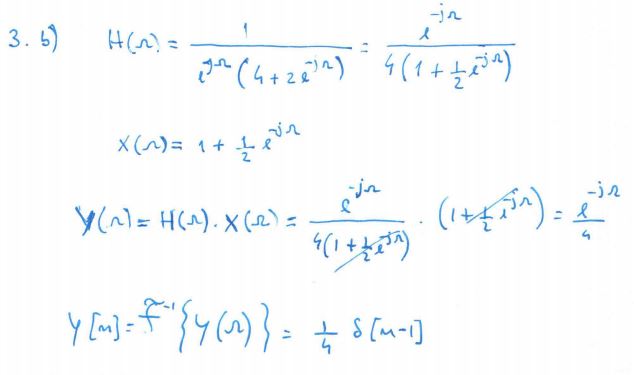 3. b) H(Ω) = 1 / (e^{jΩ} (4 + 2 e^{-jΩ})) = e^{-jΩ} / (4 (1 + 1/2 e^{-jΩ}))
X(Ω) = 1 + 1/2 e^{-jΩ}
Y(Ω) = H(Ω) . X(Ω) = e^{-jΩ} / (4 (1 + 1/2 e^{-jΩ})) . (1 + 1/2 e^{-jΩ}) = e^{-jΩ} / 4
y[n] = F^{-1} {Y(Ω)} = 1/4 δ[n-1]